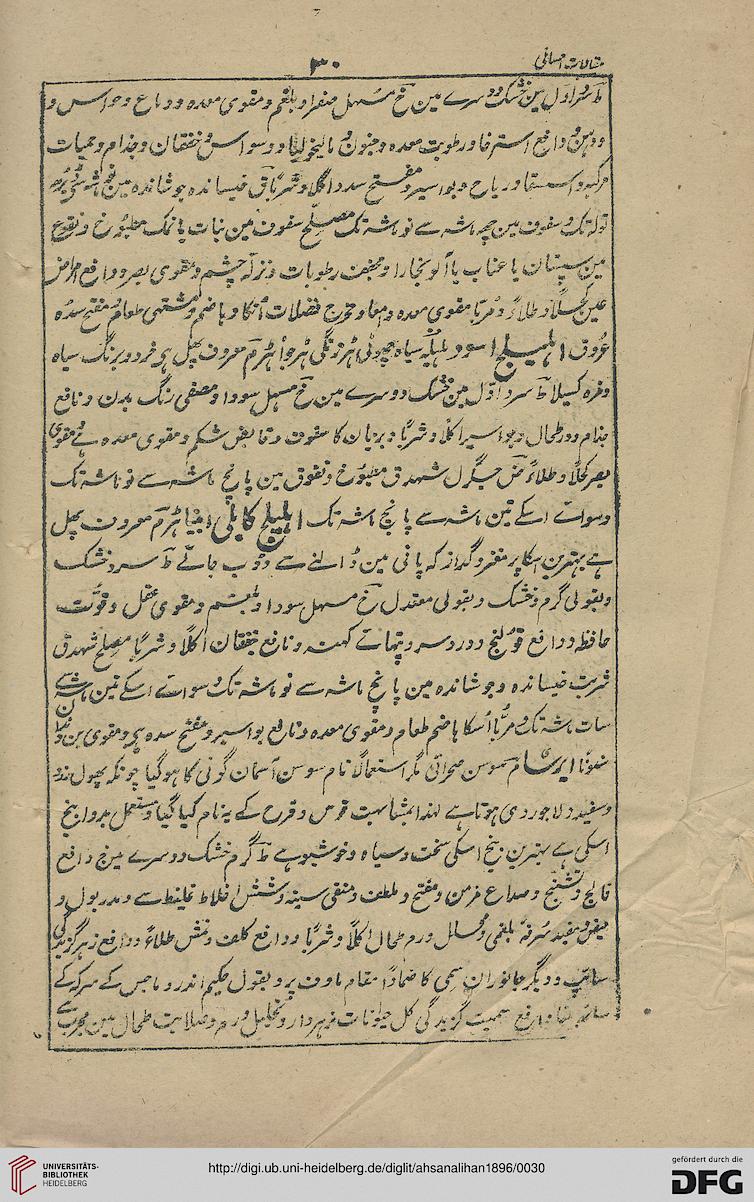 ۳۰
مقالات احسانی
ط سرد اول مین خشک دوسرے مین خ مسہل صفرا و بلغم و مقوی معدہ و دماغ و حواس و
و ذہن و دافع استرخا و رطوبت معدہ و جنون و مالیخولیا و وسواس و خفقان و جذام و حمیات
مرکبہ و استسقا و ریاح و بواسیر و مفتح سدد اکلاً و شرباً ق خیساندہ جوشاندہ مین
تولہ تک و سفوف مین چہ ماشہ سے نو ماشہ تک مصلح سفوف مین نبات یا نمک مطبوخ و نقوع
مین سپستان یا عناب یا آلو بخارا و مجفف رطوبات و نزلہ چشم و مقوی بصر و دافع امراض
عین کحلاً و طلاءً و مربا مقوی معدہ و امعا و مخرج فضلات اُنکا و ہاضم و مشتہی طعام و مفتح سدہ
عروق اہلیلج اسود ہلیلہ سیاہ چھوٹی ہڑ زنگی ہڑ م معروف پھل ہے خرد و برنگ سیاہ
و مزہ کسیلا ط سرد اول مین خشک دوسرے مین خ مسہل سودا و مصفی رنگ بدن و نافع
جذام و ورم طحال و بواسیر اکلاً و شرباً و بریان کا سفوف و قابض شکم و مقوی معدہ ہے و مقوی
بصر کحلاً و طلاءً ض جگر ل شہد ق مطبوخ و نقوع مین پانچ ماشہ سے نو ماشہ تک
و سوائے اسکے تین ماشہ سے پانچ ماشہ تک اہلیلج کابلی ہڑ م معروف پھل
ہے بہترین اسکا پر مغز و گداز کہ پانی مین ڈالنے سے ڈوب جائے ط سرد خشک
و بقولی گرم و خشک و بقولی معتدل خ مسہل سودا و بلغم و مقوی عقل و قوت
حافظہ و دافع قولنج و درد سر و تپہائے کہنہ و نافع خفقان اکلاً و شرباً مصلح شہد ق
شربت خیساندہ و جوشاندہ مین پانچ ماشہ سے نو ماشہ تک و سوائے اسکے تین ماشہ سے
سات ماشہ تک و مربا اُسکا ہاضم طعام و مقوی معدہ و نافع بواسیر و مفتح سدہ ہے و مقوی بن دندان
سنوناً ایرسا م سوسن صحرائی مگر استعمالاً نام سوسن آسمان گونی کا ہوگیا چونکہ پھول زرد
و سفید و لاجوردی ہوتا ہے لہذا بمشابہت قوس و قزح کے یہ نام کیا گیا و مستعمل بدوا بیخ
اسکی ہے بہترین بیخ اسکی سخت و سیاہ و خوشبو ہے ط گرم خشک دوسرے مین خ دافع
فالج و تشنج و صداع مزمن و مفتح و ملطف و منقی سینہ و شش اخلاط غلیظ سے و مدر بول و
حیض و مفید سرفہ بلغمی و محلل ورم طحال اکلاً و شرباً و دافع کلف و نمش طلاءً و دافع زہر گزیدگی
سانپ و دیگر جانوران سمی کا ضماداً مقام ماوف پر و بقول حکیم اندروماخس کے سرکہ کے
ساتھ دافع سمیت گزیدگی کل حیوانات زہردار و تحلیل ورم و صلابت طحال مین مجرب ہے
UNIVERSITÄTS-
BIBLIOTHEK
HEIDELBERG
http://digi.ub.uni-heidelberg.de/diglit/ahsanalihan1896/0030
gefördert durch die
DFG